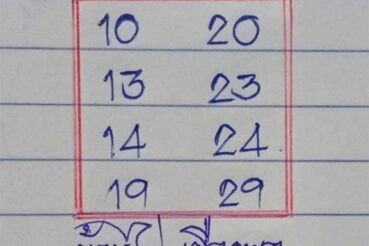 10 20
13 23
14 24
19 29